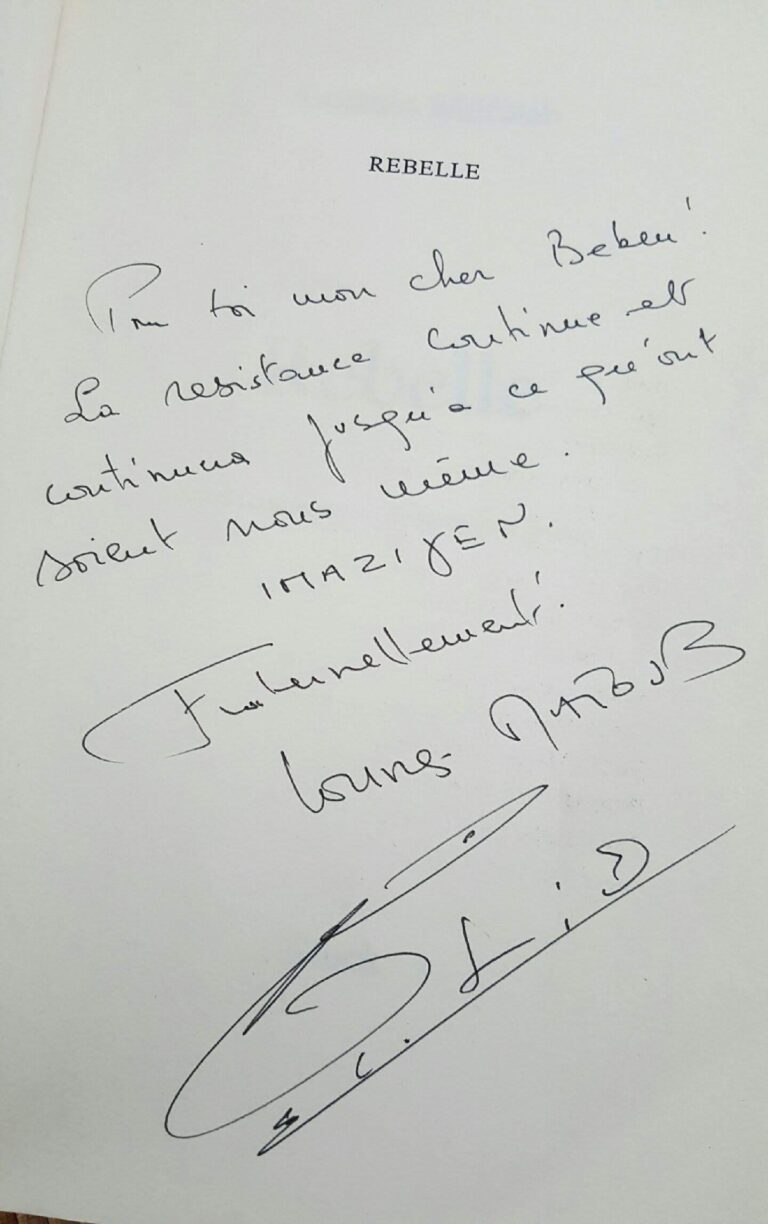 REBELLE
Pour toi mon cher Beken!
La resistance continue et
continuera jusqu'a ce qu'ont
soient nous même.
IMAZIƔEN.
Fraternellement!
Lounes MATOUB